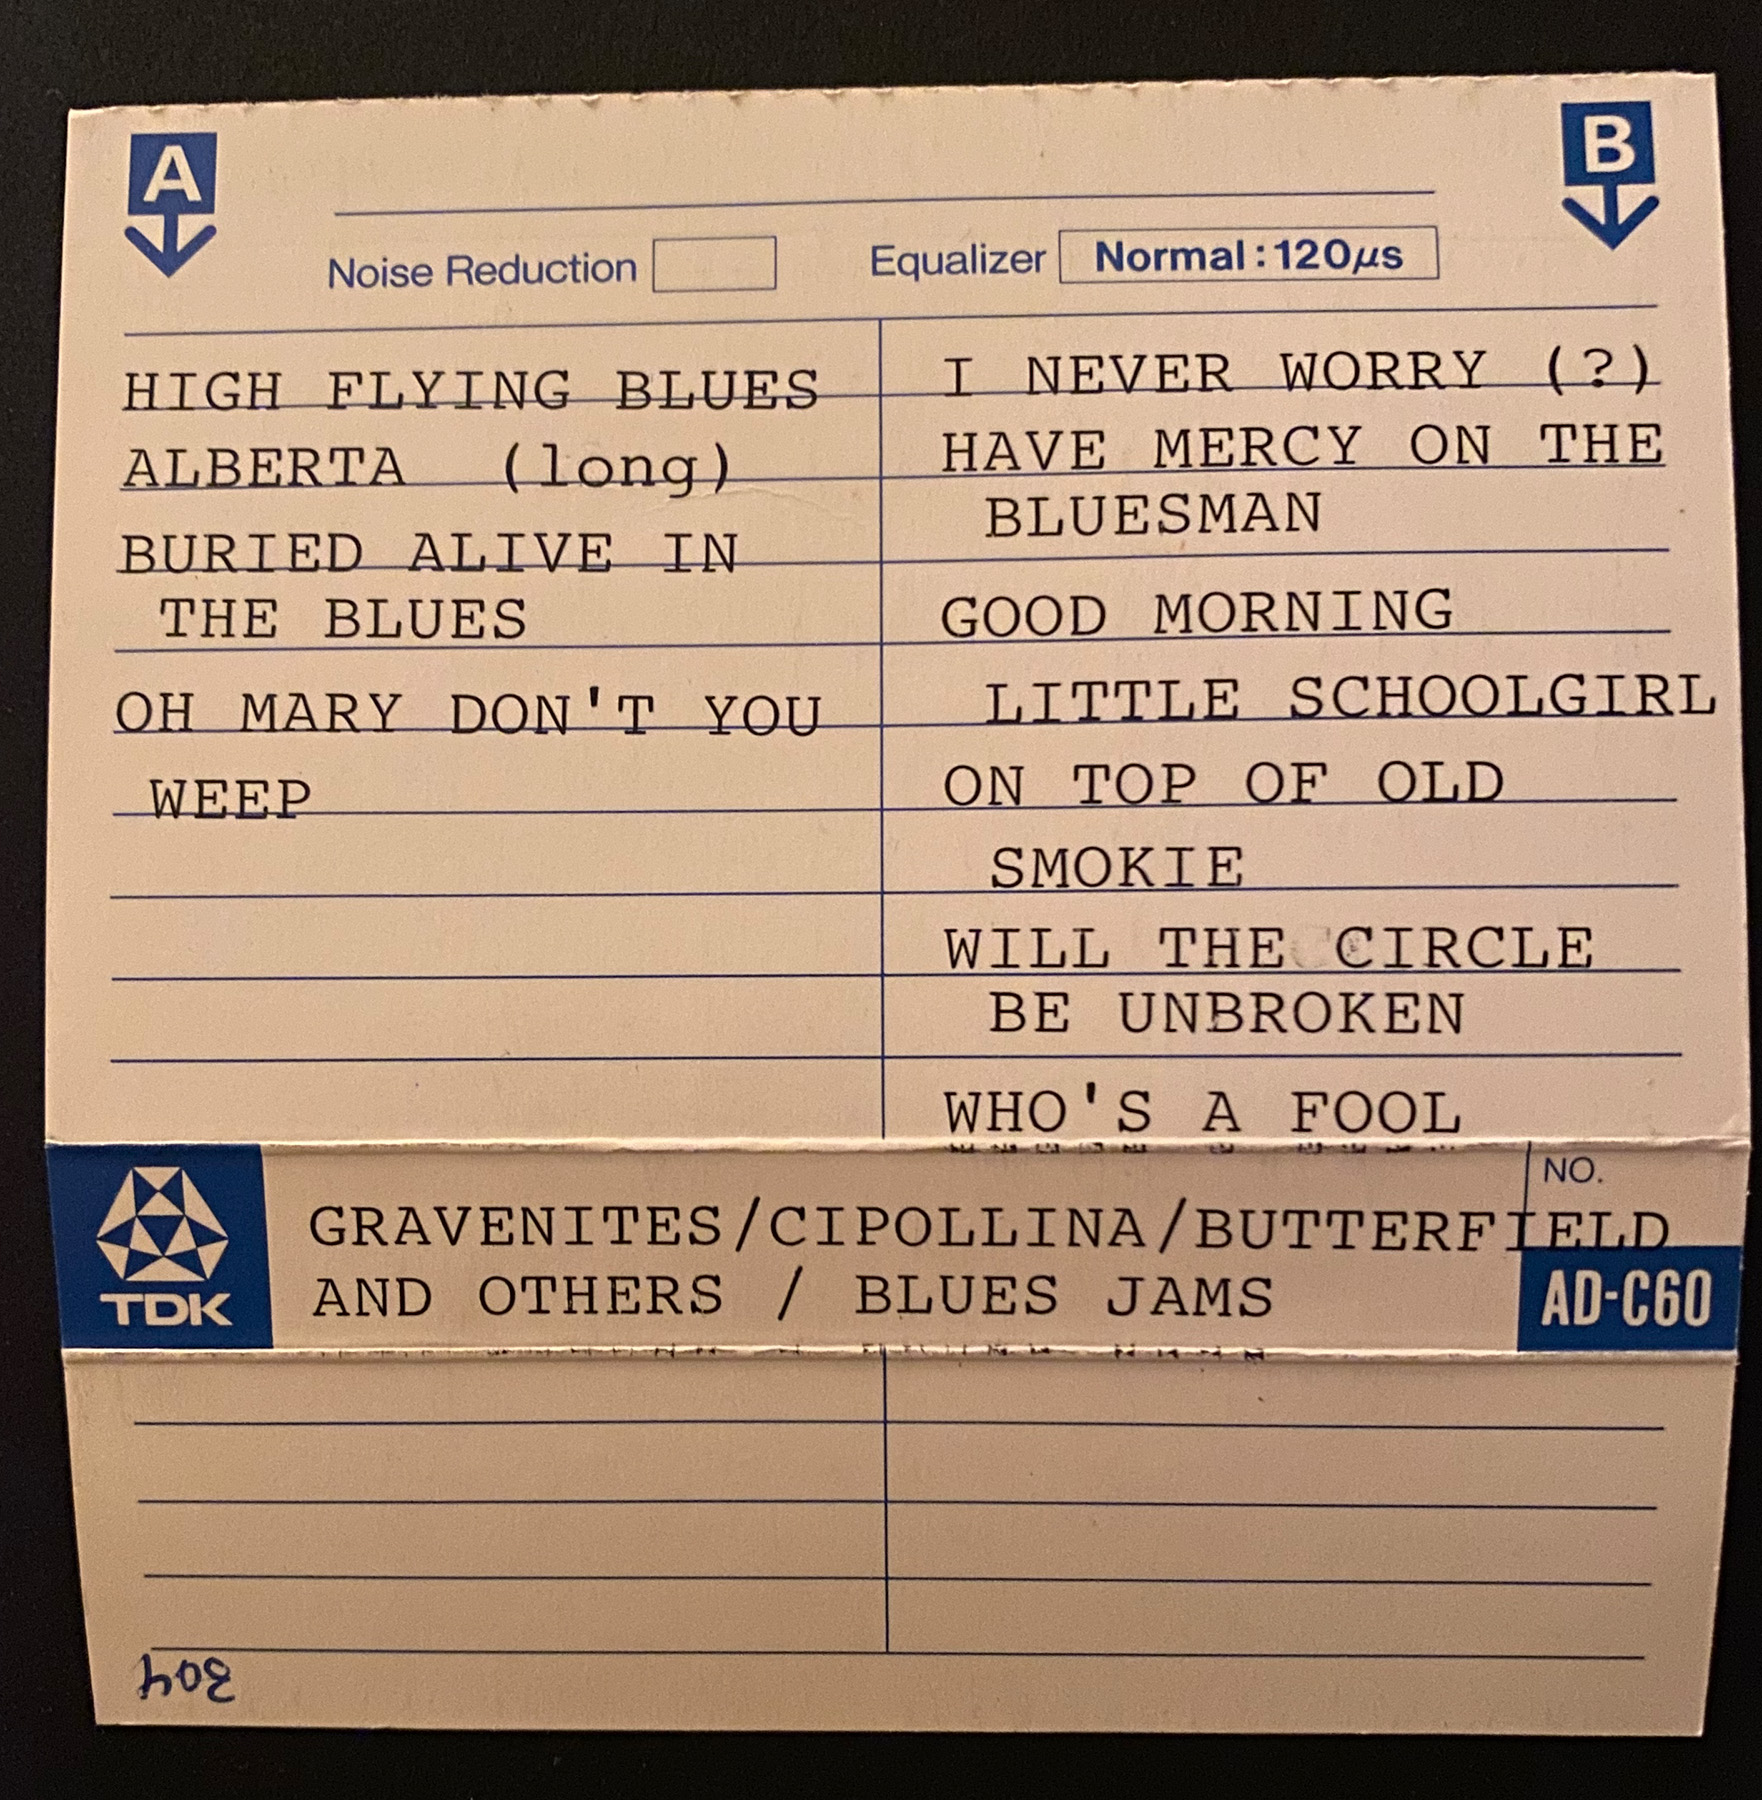 A
B
Noise Reduction
Equalizer Normal:120μs
HIGH FLYING BLUES
ALBERTA (long)
BURIED ALIVE IN
THE BLUES
OH MARY DON'T YOU
WEEP
I NEVER WORRY (?)
HAVE MERCY ON THE
BLUESMAN
GOOD MORNING
LITTLE SCHOOLGIRL
ON TOP OF OLD
SMOKIE
WILL THE CIRCLE
BE UNBROKEN
WHO'S A FOOL
NO.
TDK
GRAVENITES/CIPOLLINA/BUTTERFIELD
AND OTHERS / BLUES JAMS
AD-C60
304